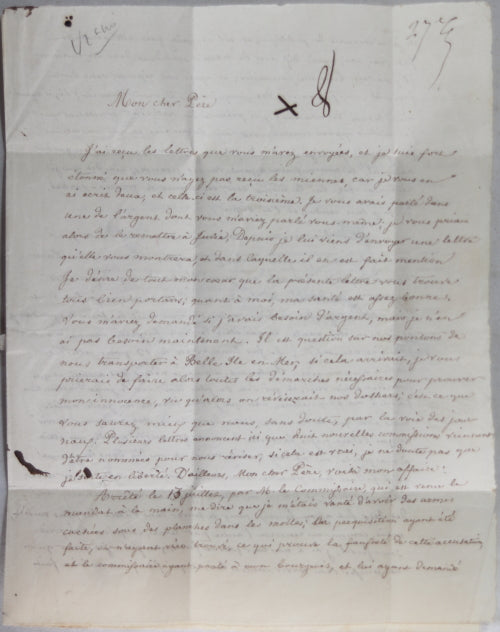 27
× 8
Mon cher Père
J'ai reçu les lettres que vous m'avez envoyées, et je suis fort
étonné que vous n'ayez pas reçu les miennes, car je vous en
ai écrit deux, et celle-ci est la troisième. Je vous avais parlé dans
une de l'argent dont vous m'aviez parlé vous-même, je vous priais
alors de le remettre à Julie. Depuis je lui viens d'envoyer une lettre
qu'elle vous montrera et dans laquelle il en est fait mention
Je désire de tout mon cœur que la présente lettre vous trouve
tous bien portans; quant à moi, ma santé est assez bonne.
Vous m'aviez demandé si j'avais besoin d'argent, mais je n'en
ai pas besoin maintenant. Il est question sur nos pontons de
nous transporter à Belle Ile en Mer, si cela arrivait, je vous
prierais de faire alors toutes les démarches nécessaires pour prouver
mon innocence, vu qu'alors on réviserait nos dossiers; c'est ce que
vous saurez mieux que nous, sans doute, par la voie des jour
naux. Plusieurs lettres anoncent ici que huit nouvelles commissions viennent
d'être nommées pour nous réviser, si cela est vrai, je ne doute pas que
je sois en liberté. D'ailleurs, Mon cher Père, voici mon affaire:
Arrêté le 13 juillet, par M. le Commissaire, qui en vertu le
mandat à la main, me dire que je m'étais vanté d'avoir des armes
cachées sous des planches dans les moiles; La perquisition ayant été
faite, on n'ayant rien trouvé, ce qui prouve la fausseté de cette accusation
et le commissaire ayant parlé à mon bourgeois, et lui ayant demandé